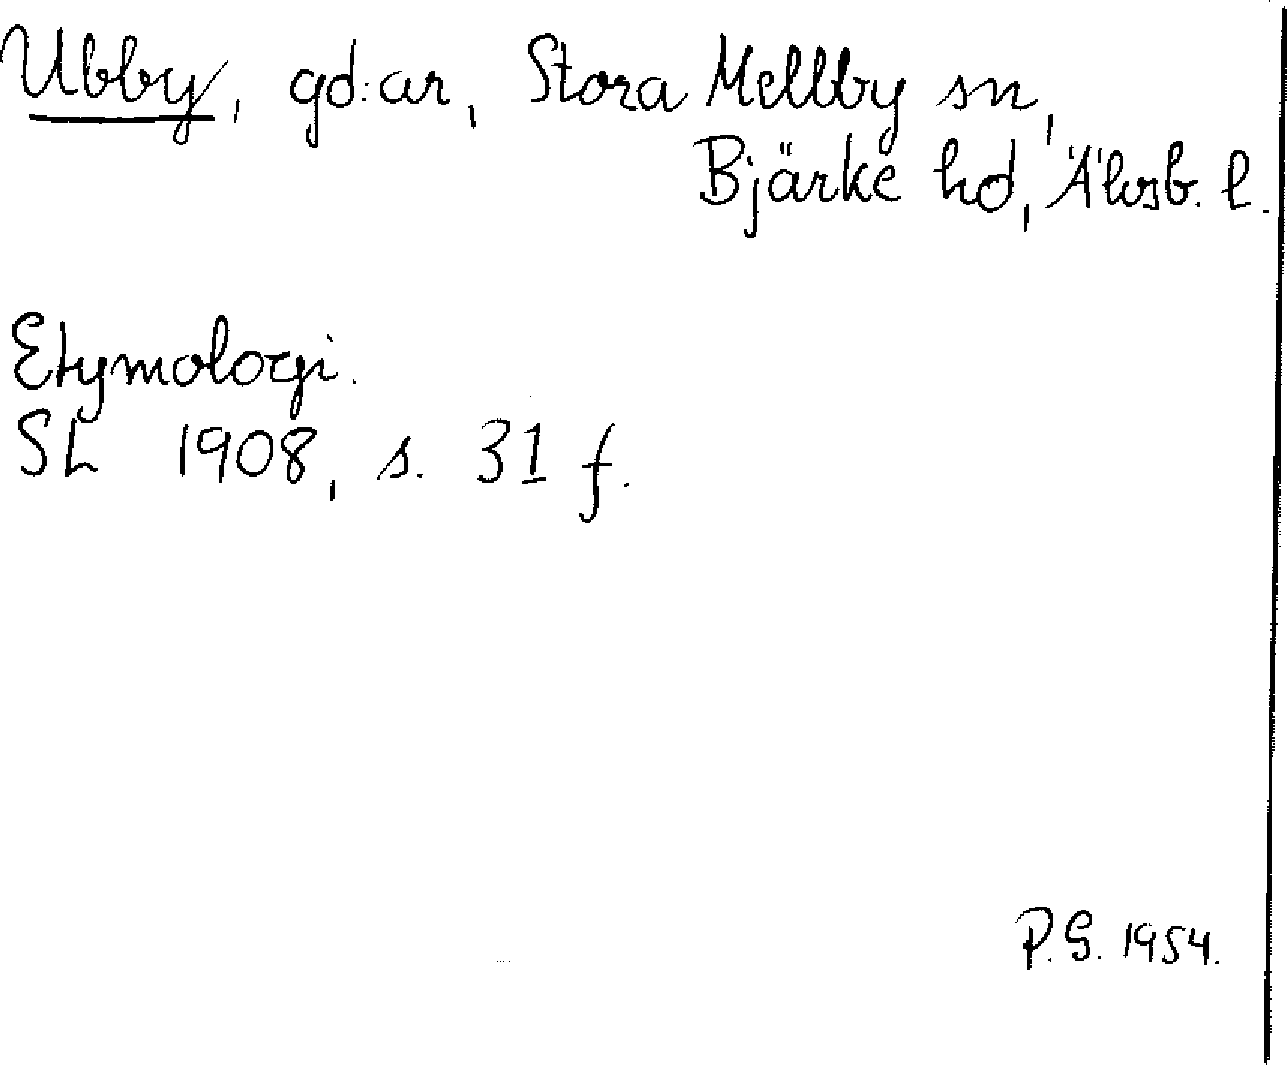 Ubby, gd:ar, Stora Mellby sn,
Bjärke hd, Älvsb. l.
Etymologi.
SL 1908, s. 31 f.
P.G. 1954.